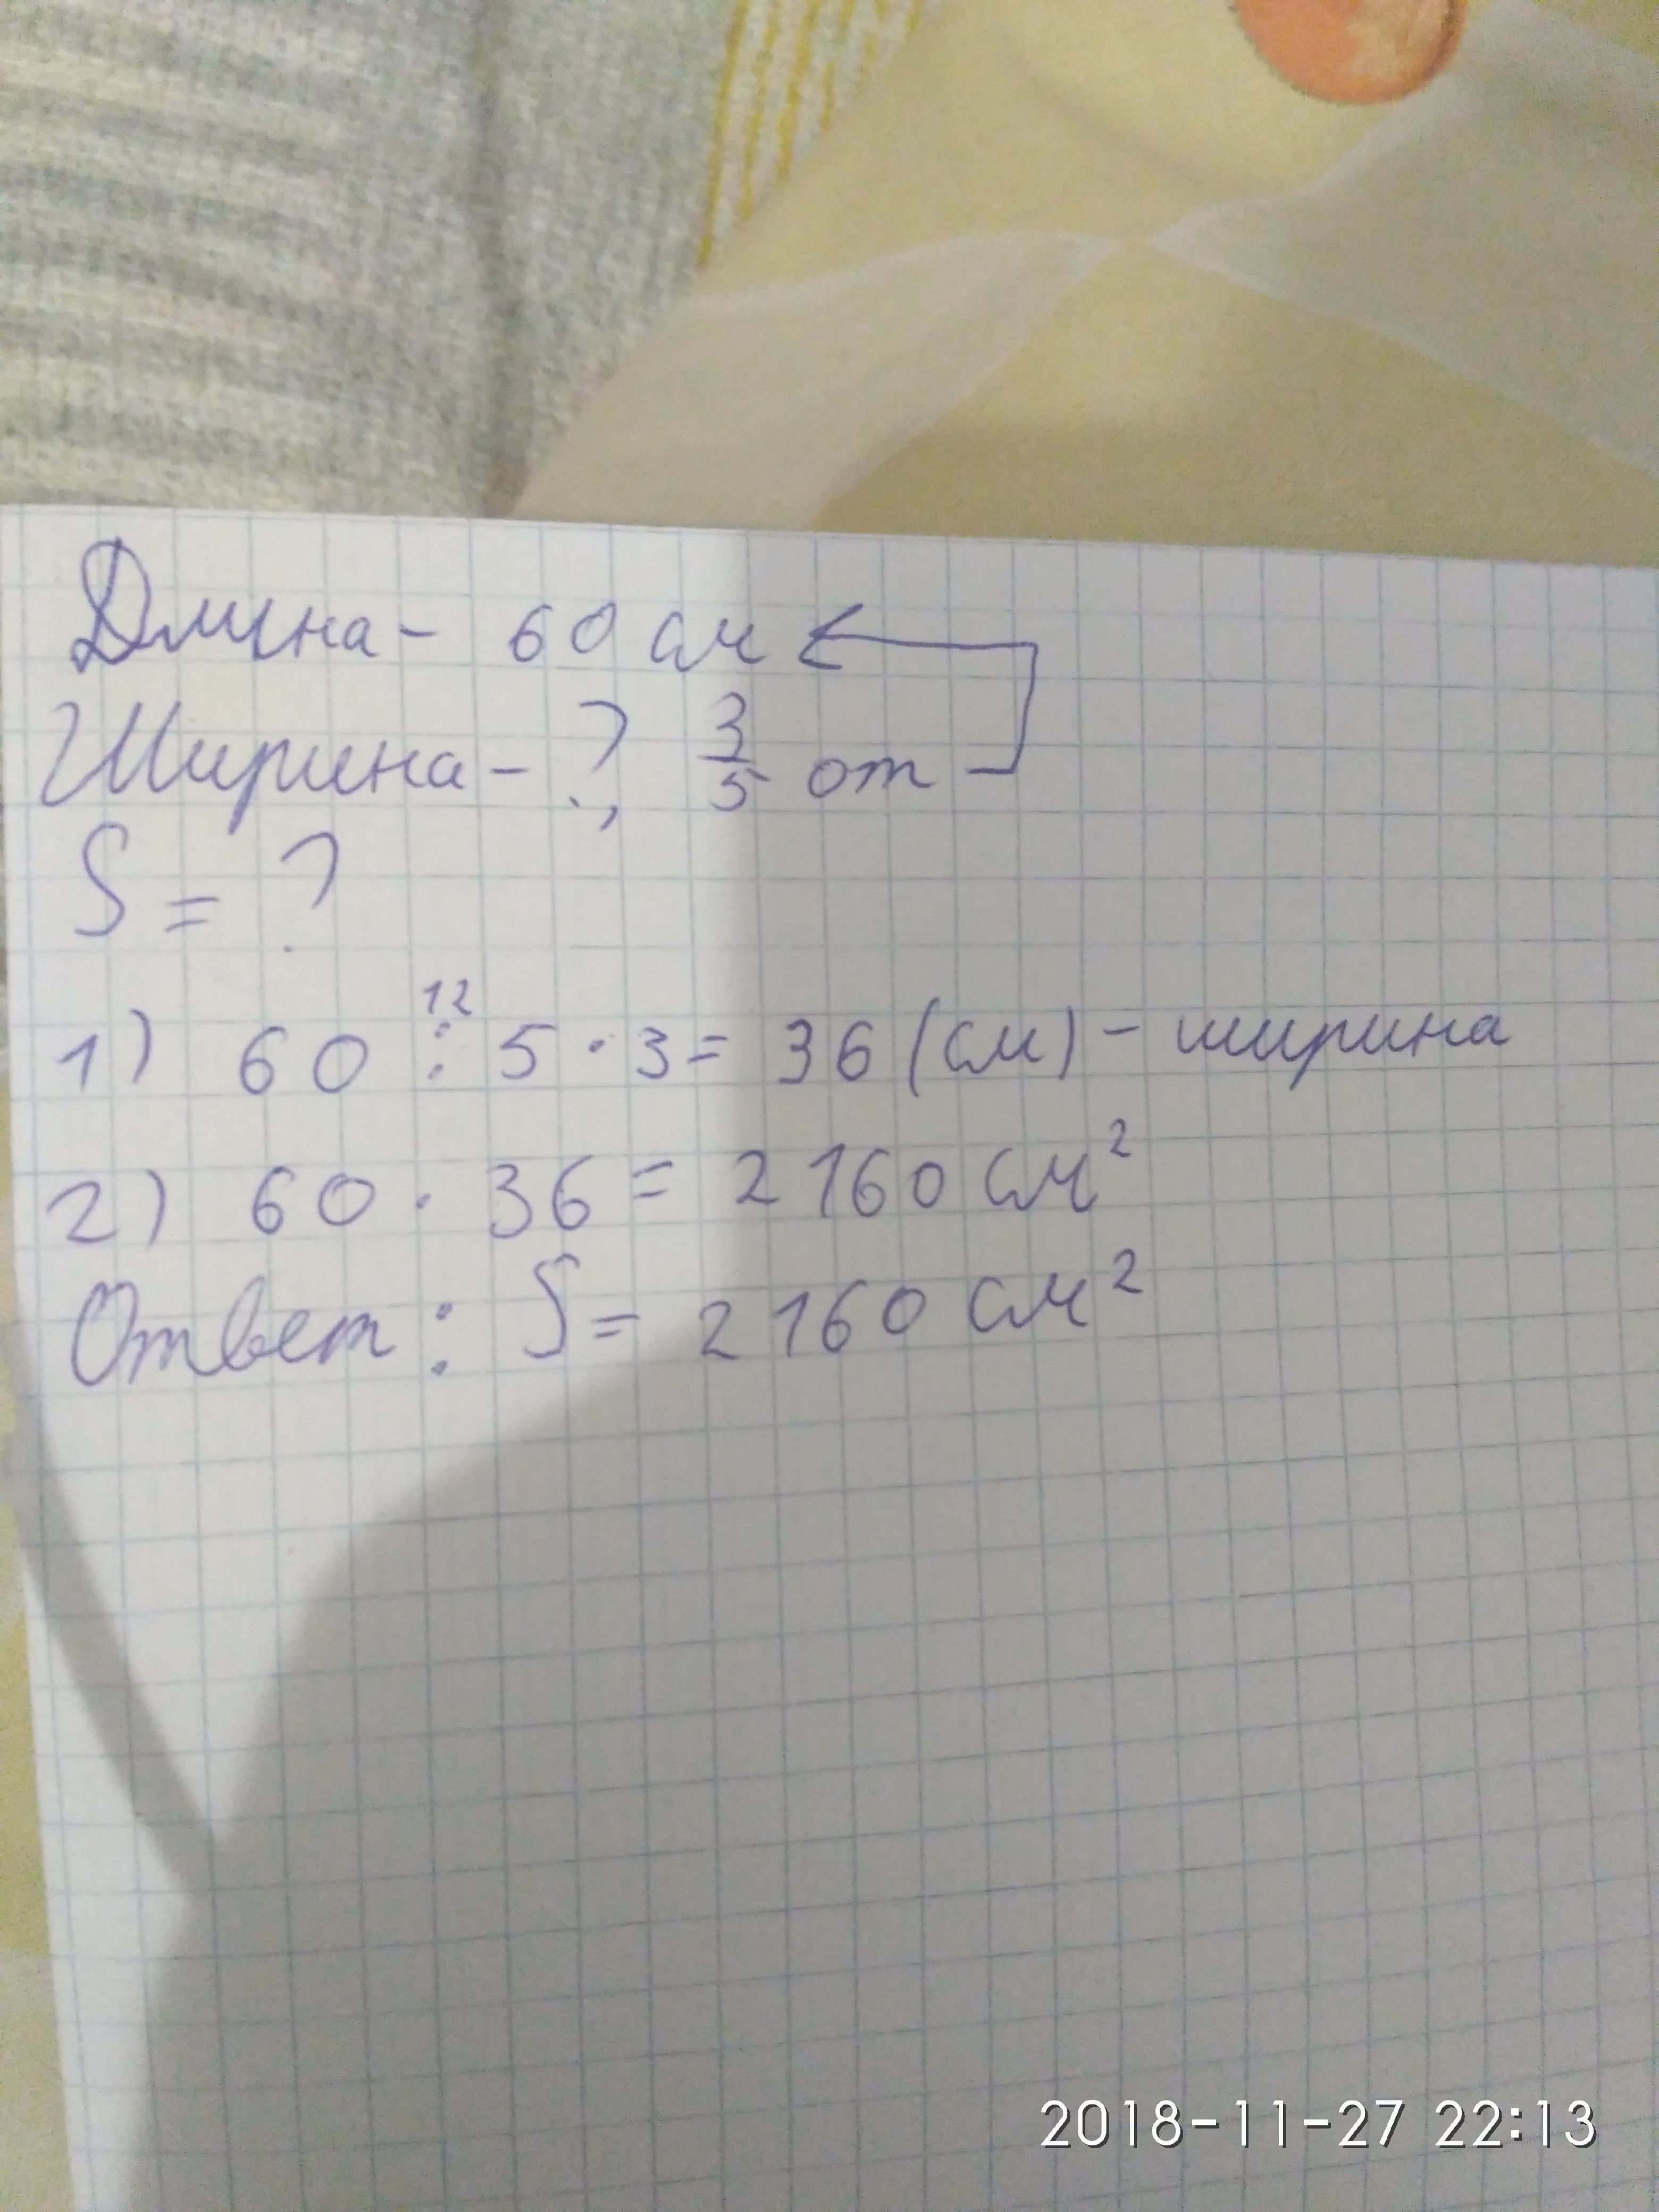 Длина - 60 см
Ширина - ?, 3/5 от
S = ?
12
1) 60 : 5 · 3 = 36 (см) - ширина
2) 60 · 36 = 2160 см²
Ответ: S = 2160 см²
2018-11-27 22:13